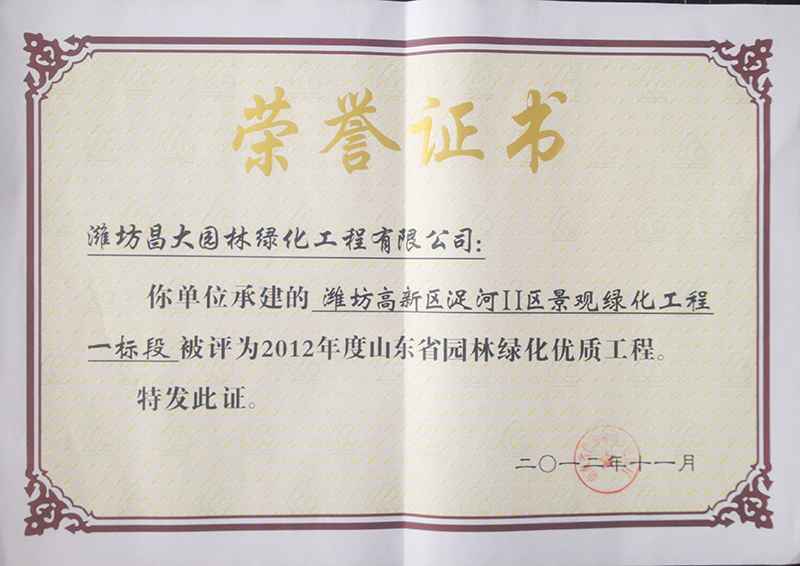 荣誉证书
潍坊昌大园林绿化工程有限公司:
你单位承建的 潍坊高新区浞河II区景观绿化工程
一标段 被评为2012年度山东省园林绿化优质工程。
特发此证。
二〇一二年十一月